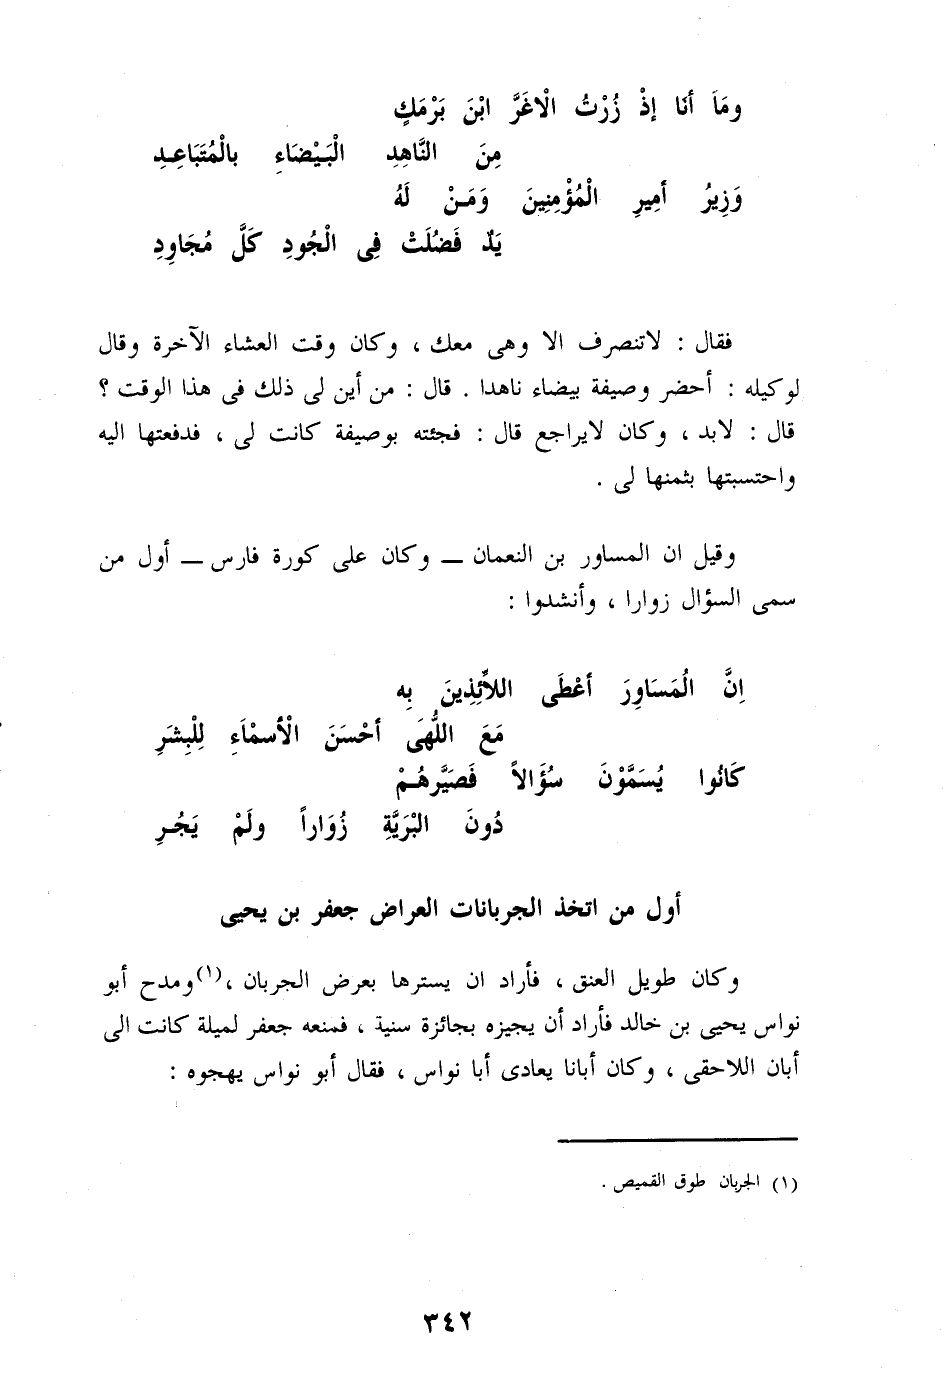 ومَا أنَا إذْ زُرْتُ الْاغَرَّ ابْنَ بَرْمَكٍ
مِنَ النَّاهِدِ الْبَيْضَاءِ بالْمُتَبَاعِدِ
وَزِيرُ أمِيرِ الْمُؤْمِنِينَ وَمَنْ لَهُ
يَدٌ فَضُلَتْ فِى الْجُودِ كَلَّ مُجَاوِدِ
فقال : لاتنصرف الا وهى معك ، وكان وقت العشاء الآخرة وقال
لوكيله : أحضر وصيفة بيضاء ناهدا . قال : من أين لى ذلك فى هذا الوقت ؟
قال : لابد ، وكان لايراجع قال : فجئته بوصيفة كانت لى ، فدفعتها اليه
واحتسبتها بثمنها لى .
وقيل ان المساور بن النعمان ــ وكان على كورة فارس ــ أول من
سمى السؤال زوارا ، وأنشدوا :
اِنَّ الُمَسَاوِرَ أعْطَى اللاَّئِذِينَ بِه
مَعَ اللُّهَى أحْسَنَ الْأسْمْاَءِ لِلْبِشَرِ
كَانُوا يُسَمَّوْنَ سُؤَالاً فَصَيَّرهُمْ
دُونَ البْرَيَّةِ زُوَاراً ولَمْ يَجُرِ
أول من اتخذ الجربانات العراض جعفر بن يحيى
وكان طويل العنق ، فأراد ان يسترها بعرض الجربان ،(١)ومدح أبو
نواس يحيى بن خالد فأراد أن يجيزه بجائزة سنية ، فمنعه جعفر لميلة كانت الى
أبان اللاحقى ، وكان أبانا يعادى أبا نواس ، فقال أبو نواس يهجوه :
(١) الجربان طوق القميص .
٣٤٢